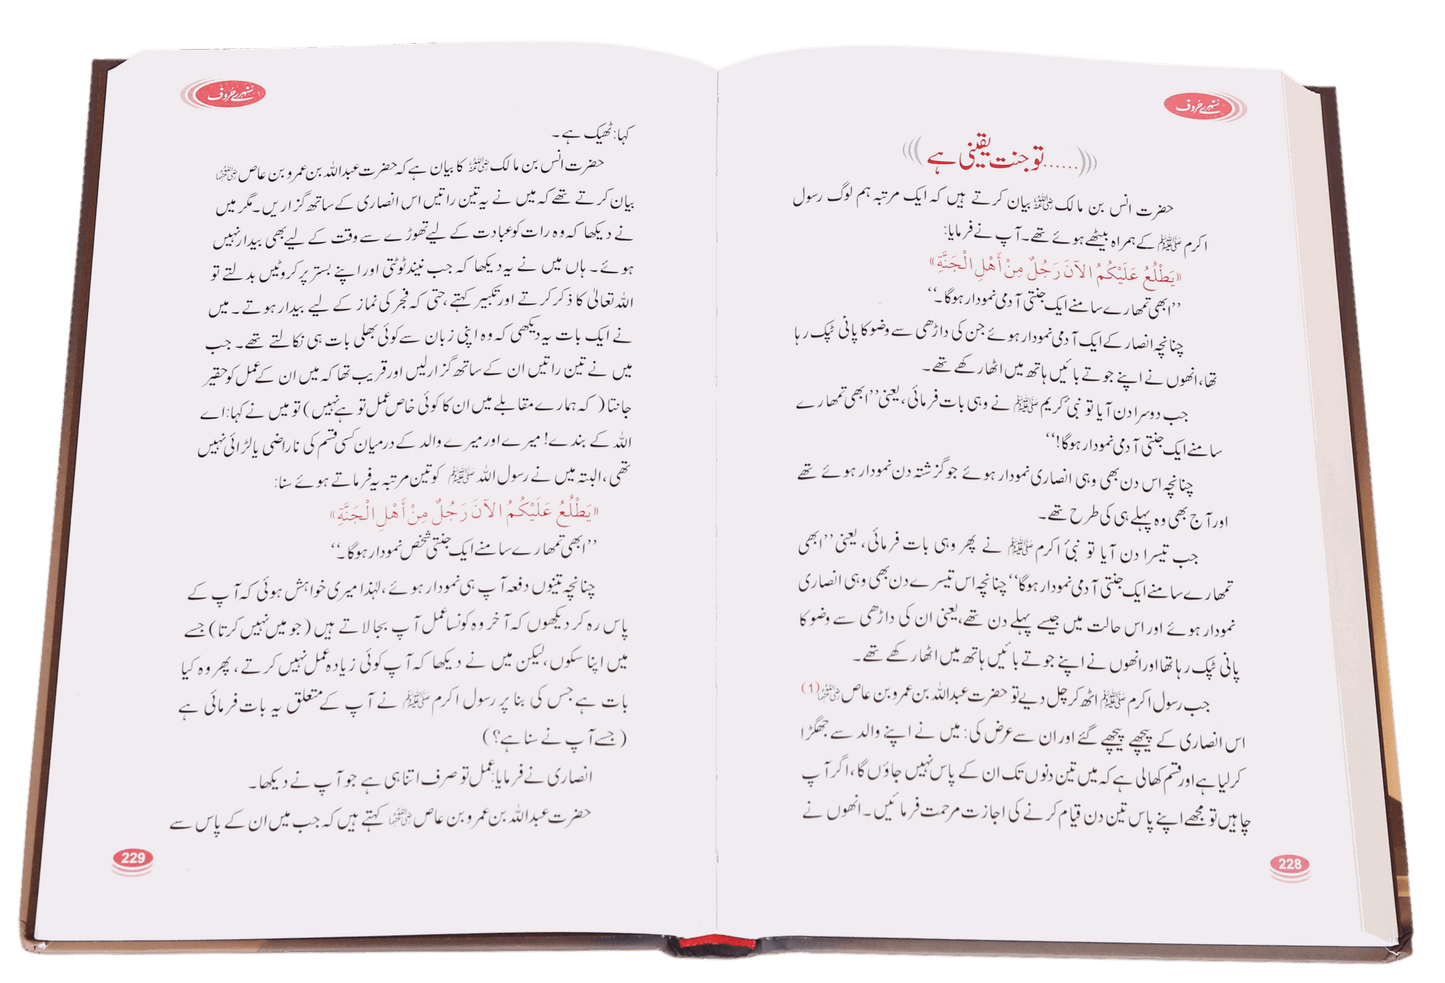 سنہرے حُروف
......تو جنت یقینی ہے
حضرت انس بن مالک ؓ بیان کرتے ہیں کہ ایک مرتبہ ہم لوگ رسول
اکرم ﷺ کے ہمراہ بیٹھے ہوئے تھے۔ آپ نے فرمایا:
«يَطْلُعُ عَلَيْكُمُ الآنَ رَجُلٌ مِنْ أَهْلِ الْجَنَّةِ»
’’ابھی تمھارے سامنے ایک جنتی آدمی نمودار ہوگا۔‘‘
چنانچہ انصار کے ایک آدمی نمودار ہوئے جن کی داڑھی سے وضو کا پانی ٹپک رہا
تھا، انھوں نے اپنے جوتے بائیں ہاتھ میں اٹھا رکھے تھے۔
جب دوسرا دن آیا تو نبیٔ کریم ﷺ نے وہی بات فرمائی، یعنی ’’ابھی تمھارے
سامنے ایک جنتی آدمی نمودار ہوگا!‘‘
چنانچہ اس دن بھی وہی انصاری نمودار ہوئے جو گزشتہ دن نمودار ہوئے تھے
اور آج بھی وہ پہلے ہی کی طرح تھے۔
جب تیسرا دن آیا تو نبیٔ اکرم ﷺ نے پھر وہی بات فرمائی، یعنی ’’ابھی
تمھارے سامنے ایک جنتی آدمی نمودار ہوگا‘‘ چنانچہ اس تیسرے دن بھی وہی انصاری
نمودار ہوئے اور اس حالت میں جیسے پہلے دن تھے، یعنی ان کی داڑھی سے وضو کا
پانی ٹپک رہا تھا اور انھوں نے اپنے جوتے بائیں ہاتھ میں اٹھا رکھے تھے۔
جب رسول اکرم ﷺ اٹھ کر چل دیے تو حضرت عبداللہ بن عمرو بن عاص ؓ (1)
اس انصاری کے پیچھے پیچھے گئے اور ان سے عرض کی: میں نے اپنے والد سے جھگڑا
کر لیا ہے اور قسم کھا لی ہے کہ میں تین دنوں تک ان کے پاس نہیں جاؤں گا، اگر آپ
چاہیں تو مجھے اپنے پاس تین دن قیام کرنے کی اجازت مرحمت فرمائیں۔ انھوں نے
228
سنہرے حُروف
کہا: ٹھیک ہے۔
حضرت انس بن مالک ؓ کا بیان ہے کہ حضرت عبداللہ بن عمرو بن عاص ؓ
بیان کرتے تھے کہ میں نے یہ تین راتیں اس انصاری کے ساتھ گزاریں۔ مگر میں
نے دیکھا کہ وہ رات کو عبادت کے لیے تھوڑے سے وقت کے لیے بھی بیدار نہیں
ہوئے۔ ہاں میں نے یہ دیکھا کہ جب نیند ٹوٹتی اور اپنے بستر پر کروٹیں بدلتے تو
اللہ تعالیٰ کا ذکر کرتے اور تکبیر کہتے، حتی کہ فجر کی نماز کے لیے بیدار ہوتے۔ میں
نے ایک بات یہ دیکھی کہ وہ اپنی زبان سے کوئی بھلی بات ہی نکالتے تھے۔ جب
میں نے تین راتیں ان کے ساتھ گزار لیں اور قریب تھا کہ میں ان کے عمل کو حقیر
جانتا (کہ ہمارے مقابلے میں ان کا کوئی خاص عمل تو ہے نہیں) تو میں نے کہا: اے
اللہ کے بندے! میرے اور میرے والد کے درمیان کسی قسم کی ناراضی یا لڑائی نہیں
تھی، البتہ میں نے رسول اللہ ﷺ کو تین مرتبہ یہ فرماتے ہوئے سنا:
«يَطْلُعُ عَلَيْكُمُ الآنَ رَجُلٌ مِنْ أَهْلِ الْجَنَّةِ»
’’ابھی تمھارے سامنے ایک جنتی شخص نمودار ہوگا۔‘‘
چنانچہ تینوں دفعہ آپ ہی نمودار ہوئے، لہٰذا میری خواہش ہوئی کہ آپ کے
پاس رہ کر دیکھوں کہ آخر وہ کونسا عمل آپ بجا لاتے ہیں (جو میں نہیں کرتا) جسے
میں اپنا سکوں، لیکن میں نے دیکھا کہ آپ کوئی زیادہ عمل نہیں کرتے، پھر وہ کیا
بات ہے جس کی بنا پر رسول اکرم ﷺ نے آپ کے متعلق یہ بات فرمائی ہے
(جسے آپ نے سنا ہے؟)
انصاری نے فرمایا: عمل تو صرف اتنا ہی ہے جو آپ نے دیکھا۔
حضرت عبداللہ بن عمرو بن عاص ؓ کہتے ہیں کہ جب میں ان کے پاس سے
229